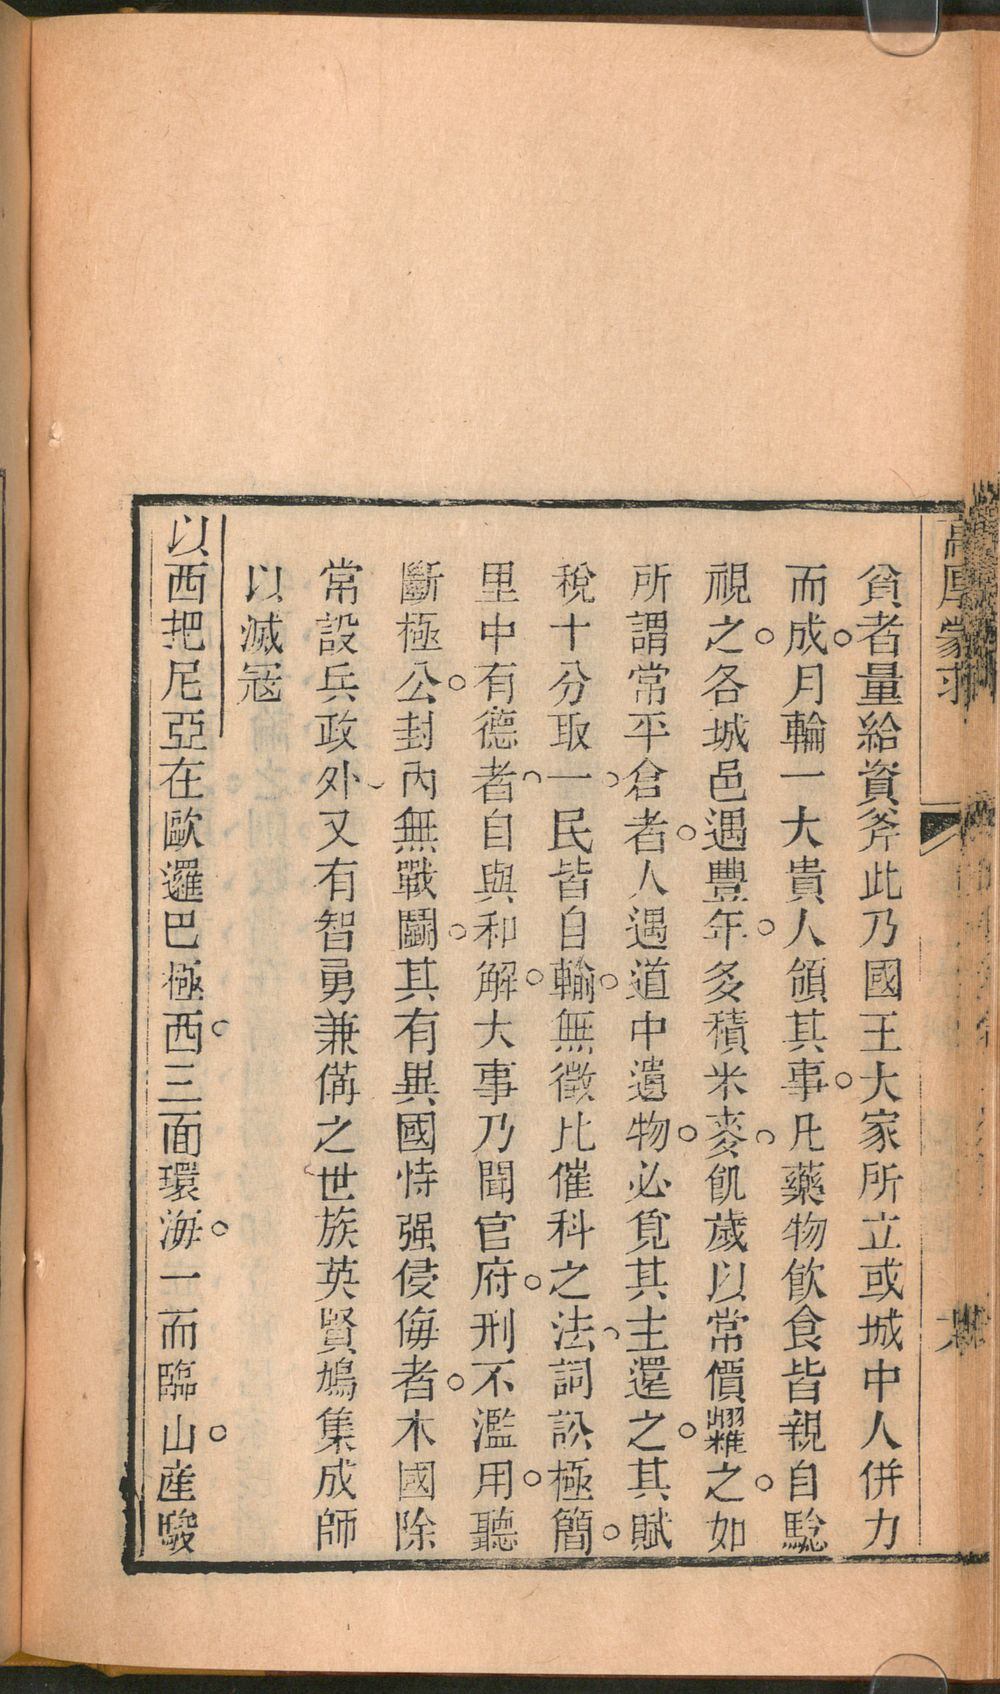 高厚蒙求
貧者量給資斧此乃國王大家所立或城中人併力
而成月輪一大貴人領其事凡藥物飲食皆親自驗
視之各城邑遇豐年多積米麥飢歲以常價糶之如
所謂常平倉者人遇道中遺物必覓其主還之其賦
稅十分取一民皆自輸無徵比催科之法詞訟極簡
里中有德者自與和解大事乃聞官府刑不濫用聽
斷極公封內無戰鬭其有異國恃强侵侮者木國除
常設兵政外又有智勇兼備之世族英賢鳩集成師
以滅寇
以西把尼亞在歐邏巴極西三面環海一而臨山產駿